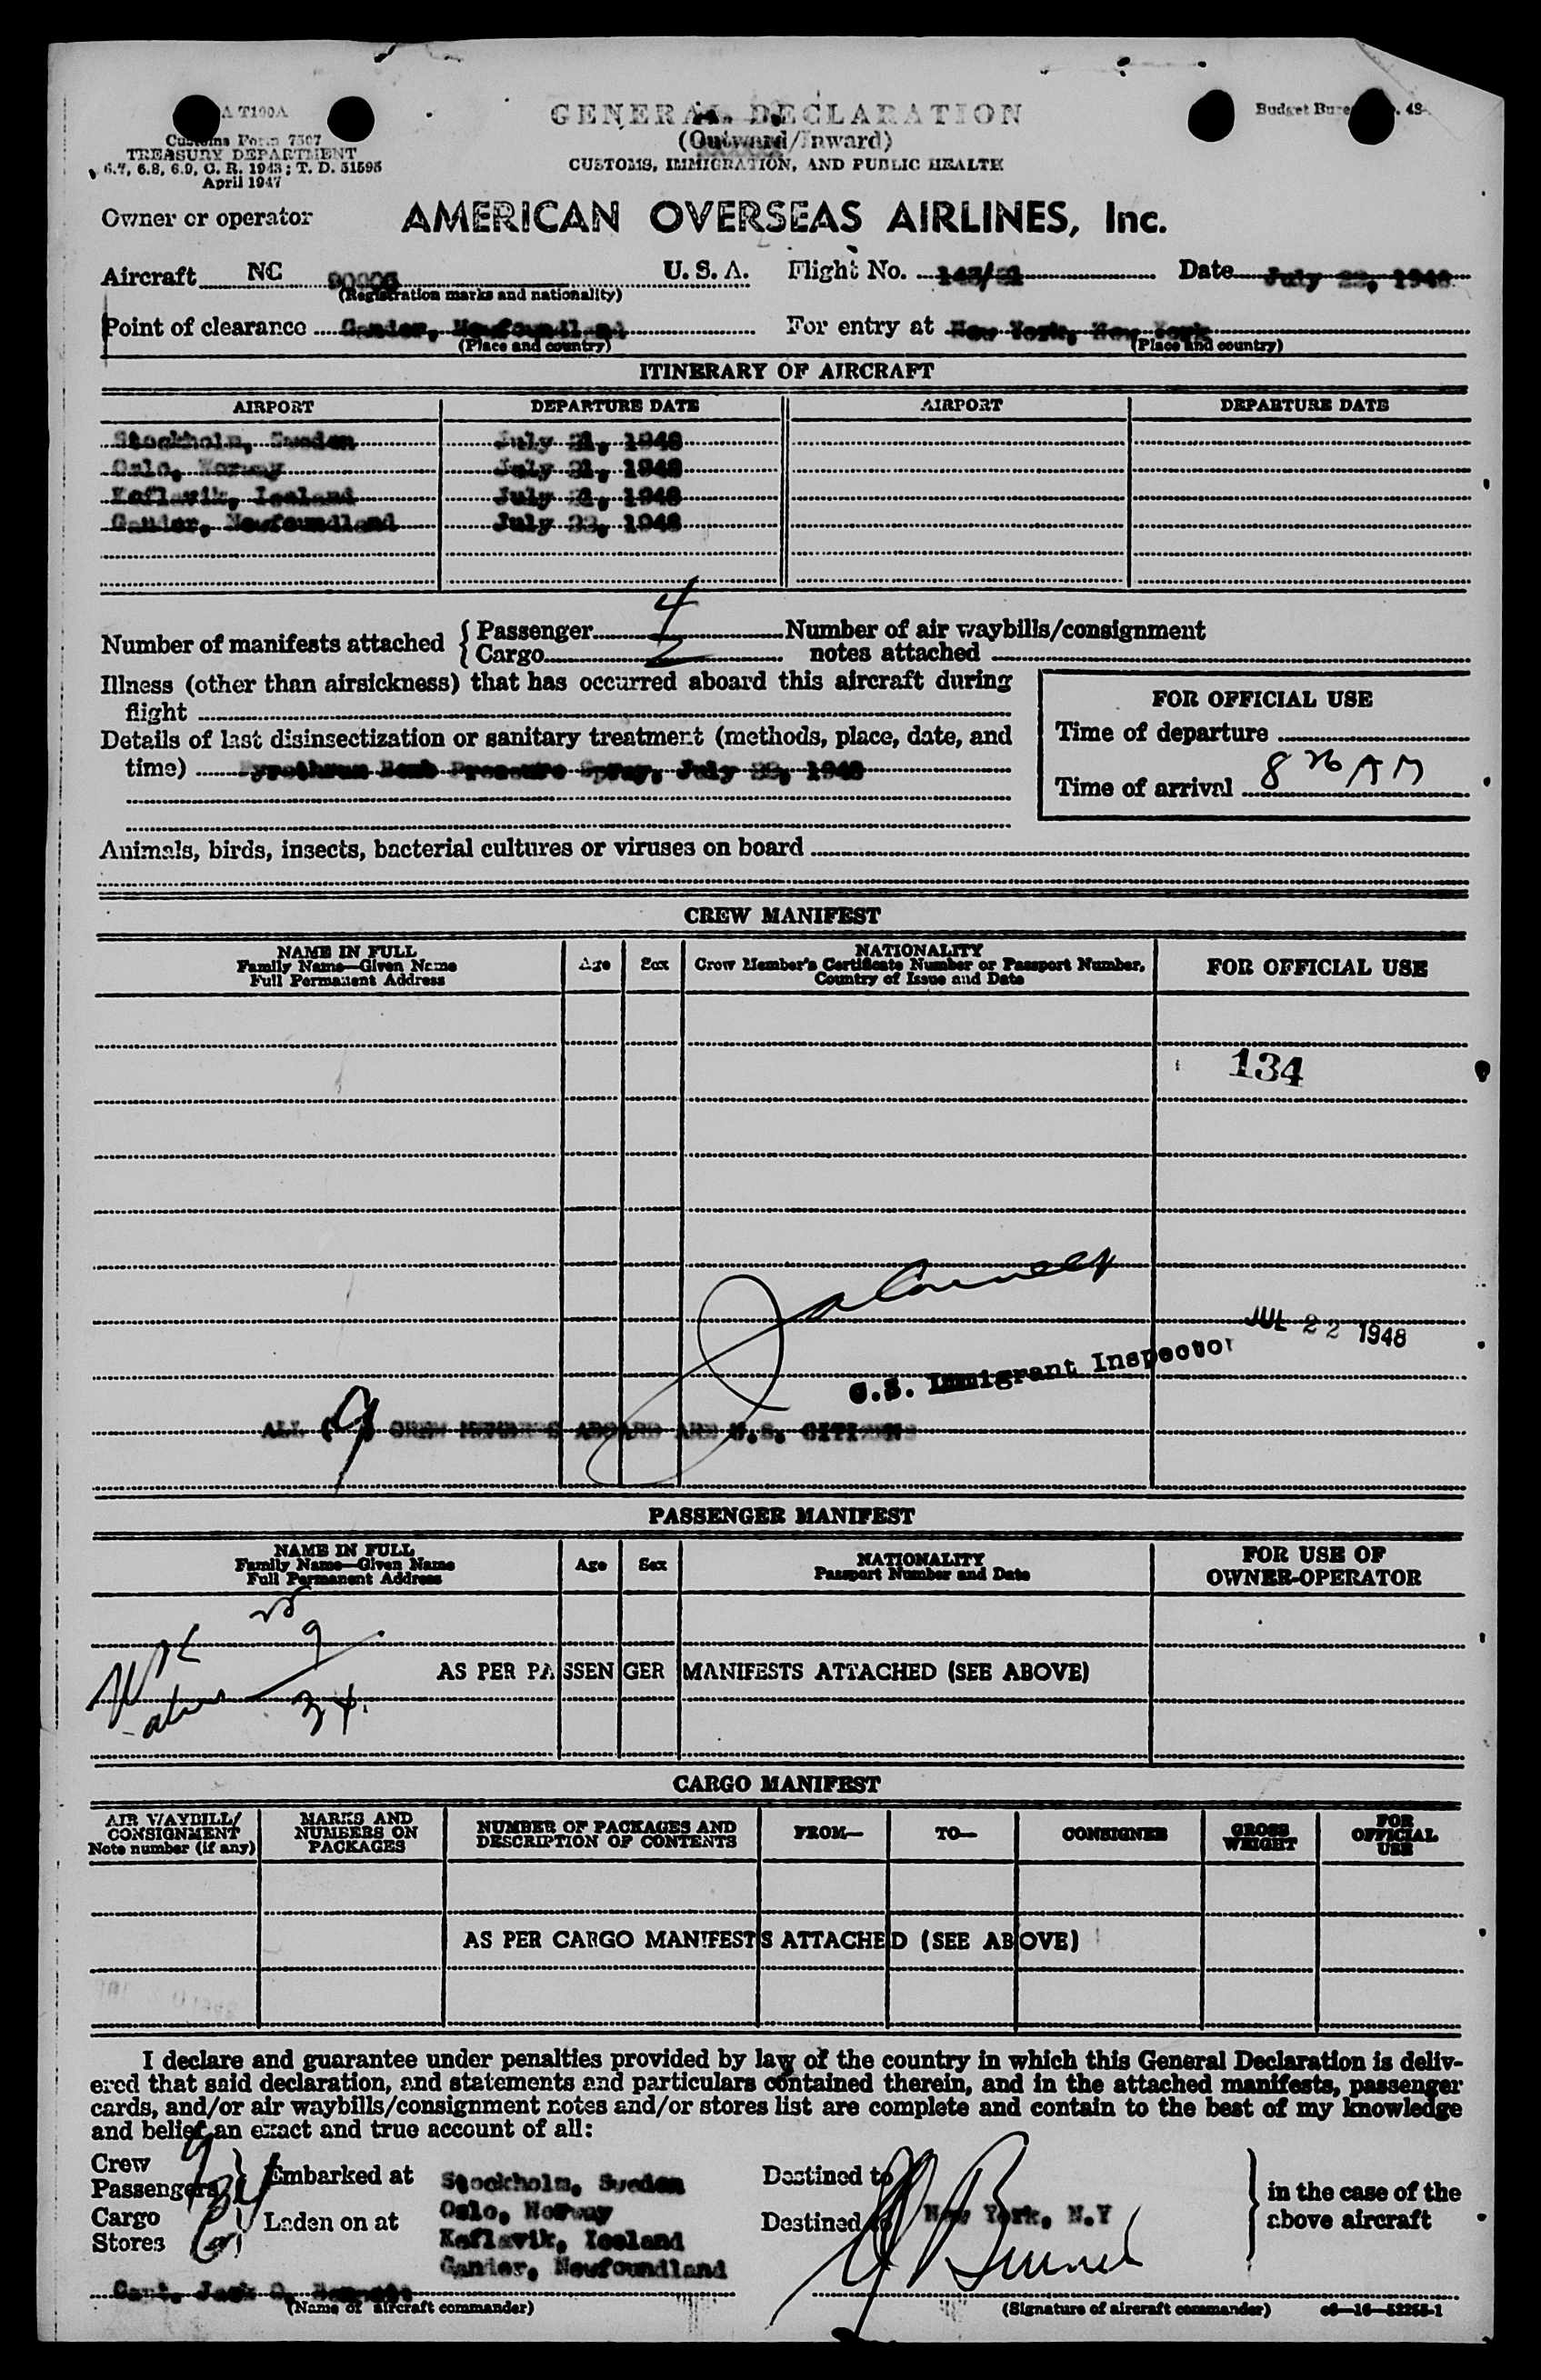 A T100A
Customs Form 7507
TREASURY DEPARTMENT
6.7, 6.8, 6.9, C. R. 1943; T. D. 51595
April 1947
GENERAL DECLARATION
(Outward/Inward)
CUSTOMS, IMMIGRATION, AND PUBLIC HEALTH
Budget Bureau
Owner or operator AMERICAN OVERSEAS AIRLINES, Inc.
Aircraft NC U. S. A. Flight No. Date July 22, 1948
(Registration marks and nationality)
Point of clearance Gander, Newfoundland For entry at New York, New York
(Place and country) (Place and country)
ITINERARY OF AIRCRAFT
AIRPORT DEPARTURE DATE AIRPORT DEPARTURE DATE
Stockholm, Sweden July 21, 1948
Oslo, Norway July 21, 1948
Keflavik, Iceland July 1948
Gander, Newfoundland July 22, 1948
Number of manifests attached { Passenger 4 Number of air waybills/consignment
Cargo 2 notes attached
Illness (other than airsickness) that has occurred aboard this aircraft during
flight
FOR OFFICIAL USE
Details of last disinsectization or sanitary treatment (methods, place, date, and
time) Pyrethrum Bomb Pressure Spray, July 22, 1948
Time of departure
Time of arrival 8 26 AM
Animals, birds, insects, bacterial cultures or viruses on board
CREW MANIFEST
NAME IN FULL
Family Name—Given Name
Full Permanent Address
Age Sex
NATIONALITY
Crew Member's Certificate Number or Passport Number,
Country of Issue and Date
FOR OFFICIAL USE
134
JUL 22 1948
U.S. Immigrant Inspector
ALL 9 CREW MEMBERS ABOARD ARE U.S. CITIZENS
PASSENGER MANIFEST
NAME IN FULL
Family Name—Given Name
Full Permanent Address
Age Sex
NATIONALITY
Passport Number and Date
FOR USE OF
OWNER-OPERATOR
9
AS PER PASSENGER MANIFESTS ATTACHED (SEE ABOVE)
34
CARGO MANIFEST
AIR WAYBILL/
CONSIGNMENT
Note number (if any)
MARKS AND
NUMBERS ON
PACKAGES
NUMBER OF PACKAGES AND
DESCRIPTION OF CONTENTS
FROM— TO— CONSIGNEE
GROSS
WEIGHT
FOR
OFFICIAL
USE
AS PER CARGO MANIFESTS ATTACHED (SEE ABOVE)
I declare and guarantee under penalties provided by law of the country in which this General Declaration is deliv-
ered that said declaration, and statements and particulars contained therein, and in the attached manifests, passenger
cards, and/or air waybills/consignment notes and/or stores list are complete and contain to the best of my knowledge
and belief an exact and true account of all:
Crew 9
Passengers 34 Embarked at Stockholm, Sweden Destined to
Oslo, Norway
in the case of the
above aircraft
Cargo Laden on at Destined to New York, N.Y
Stores Keflavik, Iceland
Gander, Newfoundland
Capt. Jack
(Name of aircraft commander) (Signature of aircraft commander) c6—16—52255-1